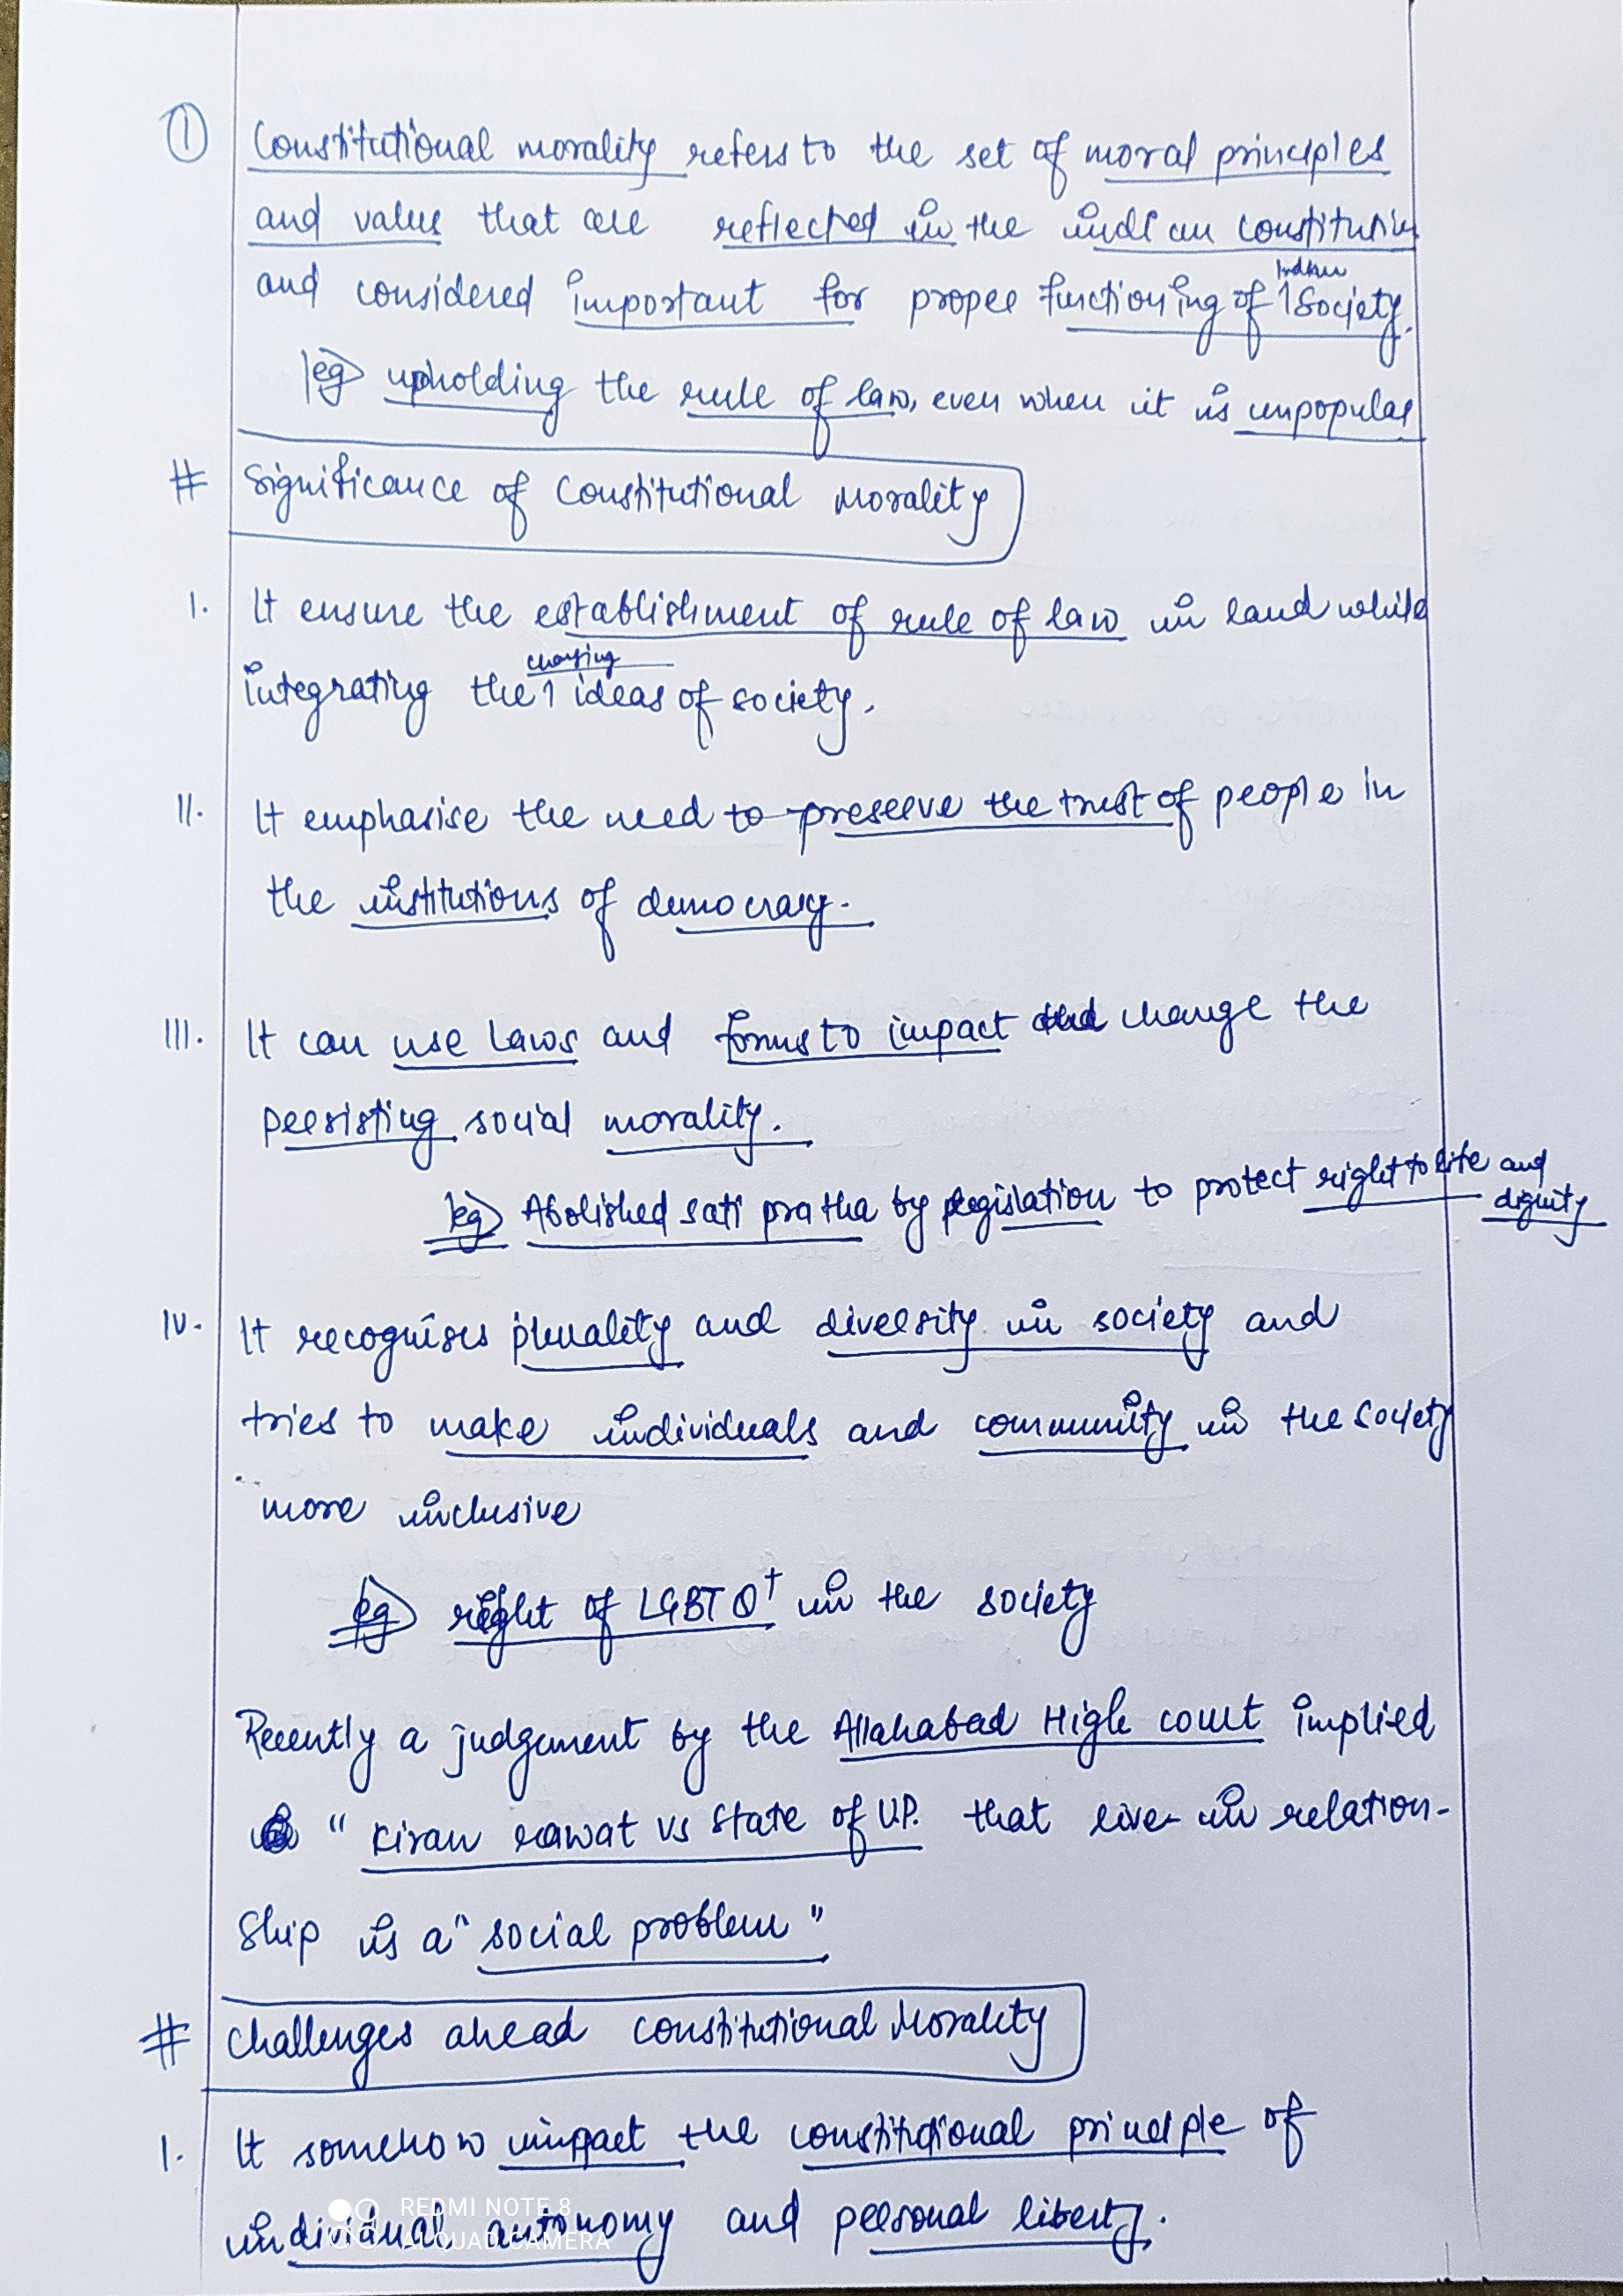 ① Constitutional morality refers to the set of moral principles
and values that are reflected in the indian constitution
and considered important for proper functioning of Indian Society.
eg upholding the rule of law, even when it is unpopular
# Significance of Constitutional Morality
I. It ensure the establishment of rule of law in land while
integrating the changing ideas of society.
II. It emphasise the need to preserve the trust of people in
the institutions of democracy.
III. It can use laws and forms to impact and change the
persisting social morality.
eg Abolished sati pratha by legislation to protect right to life and
dignity
IV. It recognises plurality and diversity in society and
tries to make individuals and community in the society
more inclusive
eg right of LGBTQ+ in the society
Recently a judgement by the Allahabad High court implied
" Kiran rawat vs State of U.P. that live-in relation-
ship is a "social problem"
# Challenges ahead constitutional Morality
I. It somehow impact the constitutional principle of
individual autonomy and personal liberty.
REDMI NOTE 8
AI QUAD CAMERA